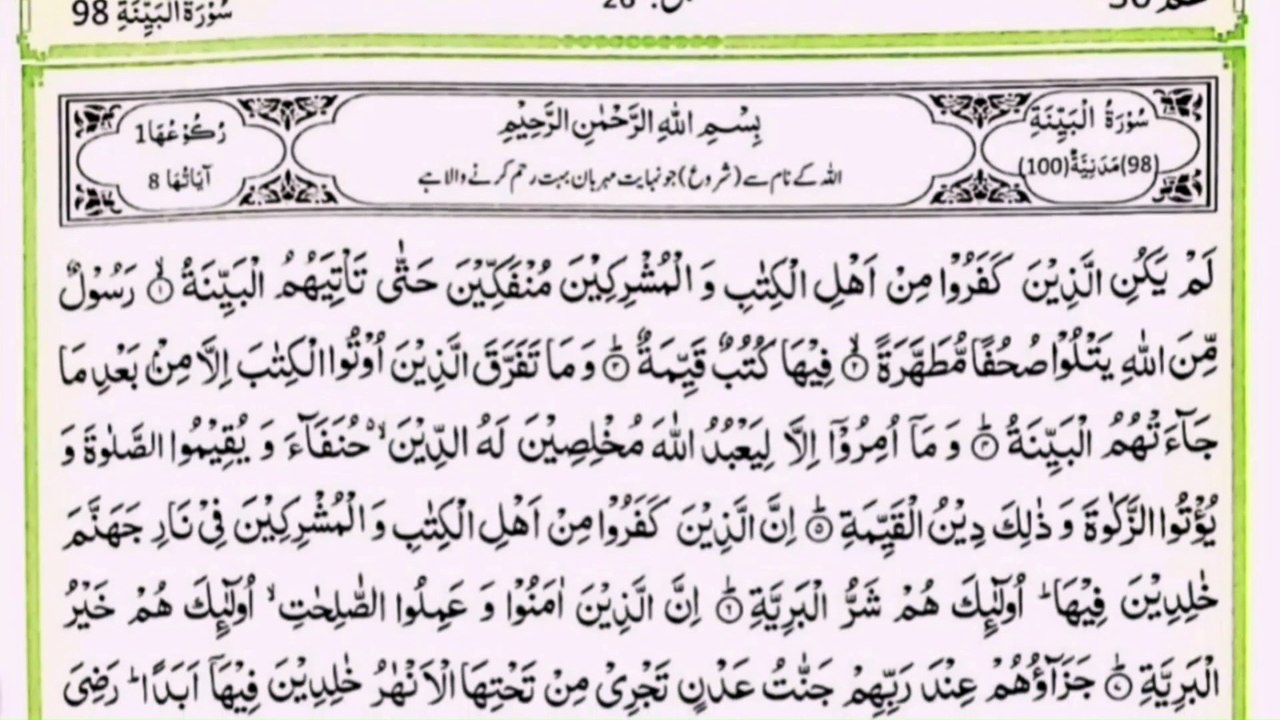 سُوْرَةُ الْبَيِّنَةِ 98
سُوْرَةُ الْبَيِّنَةِ
(98) مَدَنِيَّةٌ (100)
بِسْمِ اللّٰهِ الرَّحْمٰنِ الرَّحِيْمِ
اللہ کے نام سے (شروع) جو نہایت مہربان بہت رحم کرنے والا ہے
رُكُوْعُهَا 1
آيَاتُهَا 8
لَمْ يَكُنِ الَّذِيْنَ كَفَرُوْا مِنْ اَهْلِ الْكِتٰبِ وَ الْمُشْرِكِيْنَ مُنْفَكِّيْنَ حَتّٰى تَاْتِيَهُمُ الْبَيِّنَةُ ۙ﴿۱﴾ رَسُوْلٌ
مِّنَ اللّٰهِ يَتْلُوْا صُحُفًا مُّطَهَّرَةً ۙ﴿۲﴾ فِيْهَا كُتُبٌ قَيِّمَةٌ ؕ﴿۳﴾ وَ مَا تَفَرَّقَ الَّذِيْنَ اُوْتُوا الْكِتٰبَ اِلَّا مِنْۢ بَعْدِ مَا
جَآءَتْهُمُ الْبَيِّنَةُ ؕ﴿۴﴾ وَ مَاۤ اُمِرُوْۤا اِلَّا لِيَعْبُدُوا اللّٰهَ مُخْلِصِيْنَ لَهُ الدِّيْنَ ۙ۬ حُنَفَآءَ وَ يُقِيْمُوا الصَّلٰوةَ وَ
يُؤْتُوا الزَّكٰوةَ وَ ذٰلِكَ دِيْنُ الْقَيِّمَةِ ؕ﴿۵﴾ اِنَّ الَّذِيْنَ كَفَرُوْا مِنْ اَهْلِ الْكِتٰبِ وَ الْمُشْرِكِيْنَ فِيْ نَارِ جَهَنَّمَ
خٰلِدِيْنَ فِيْهَا ؕ اُولٰٓئِكَ هُمْ شَرُّ الْبَرِيَّةِ ؕ﴿۶﴾ اِنَّ الَّذِيْنَ اٰمَنُوْا وَ عَمِلُوا الصّٰلِحٰتِ ۙ اُولٰٓئِكَ هُمْ خَيْرُ
الْبَرِيَّةِ ؕ﴿۷﴾ جَزَآؤُهُمْ عِنْدَ رَبِّهِمْ جَنّٰتُ عَدْنٍ تَجْرِيْ مِنْ تَحْتِهَا الْاَنْهٰرُ خٰلِدِيْنَ فِيْهَاۤ اَبَدًا ؕ رَضِيَ